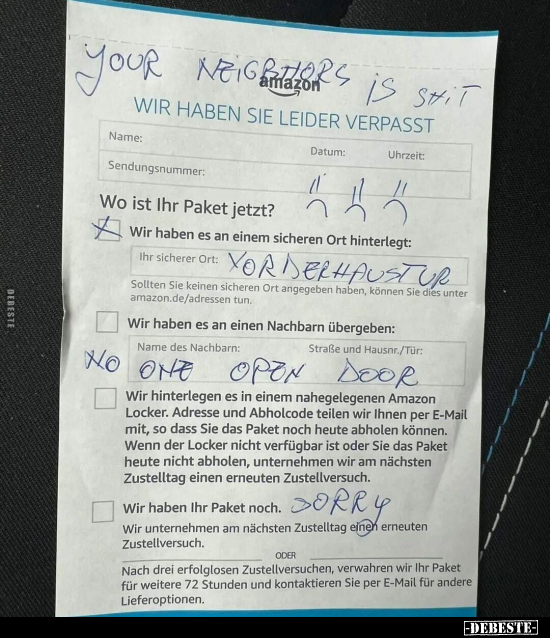 YOUR NEIGBHORS iS SHiT
amazon
WIR HABEN SIE LEIDER VERPASST
Name:
Datum: Uhrzeit:
Sendungsnummer:
Wo ist Ihr Paket jetzt?
Wir haben es an einem sicheren Ort hinterlegt:
Ihr sicherer Ort: VORDERHAUSTUR
Sollten Sie keinen sicheren Ort angegeben haben, können Sie dies unter
amazon.de/adressen tun.
Wir haben es an einen Nachbarn übergeben:
Name des Nachbarn: Straße und Hausnr./Tür:
NO ONE OPEN DOOR
Wir hinterlegen es in einem nahegelegenen Amazon
Locker. Adresse und Abholcode teilen wir Ihnen per E-Mail
mit, so dass Sie das Paket noch heute abholen können.
Wenn der Locker nicht verfügbar ist oder Sie das Paket
heute nicht abholen, unternehmen wir am nächsten
Zustelltag einen erneuten Zustellversuch.
Wir haben Ihr Paket noch. SORRY
Wir unternehmen am nächsten Zustelltag einen erneuten
Zustellversuch.
ODER
Nach drei erfolglosen Zustellversuchen, verwahren wir Ihr Paket
für weitere 72 Stunden und kontaktieren Sie per E-Mail für andere
Lieferoptionen.
DEBESTE
-DEBESTE-